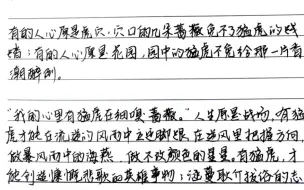 有的人心原是虎穴，穴口的几朵蔷薇免不了猛虎的践
踏；有的人心原是花园，园中的猛虎不免给那一片香
潮醉倒。
“我的心里有猛虎在细嗅蔷薇。”人生原是战场，有猛
虎才能在流逆的风雨中立定脚跟，在逆风里把握方向，
做暴风雨中的海燕，做不改颜色的星星。有猛虎，才
能创造慷慨悲歌的英雄事物；